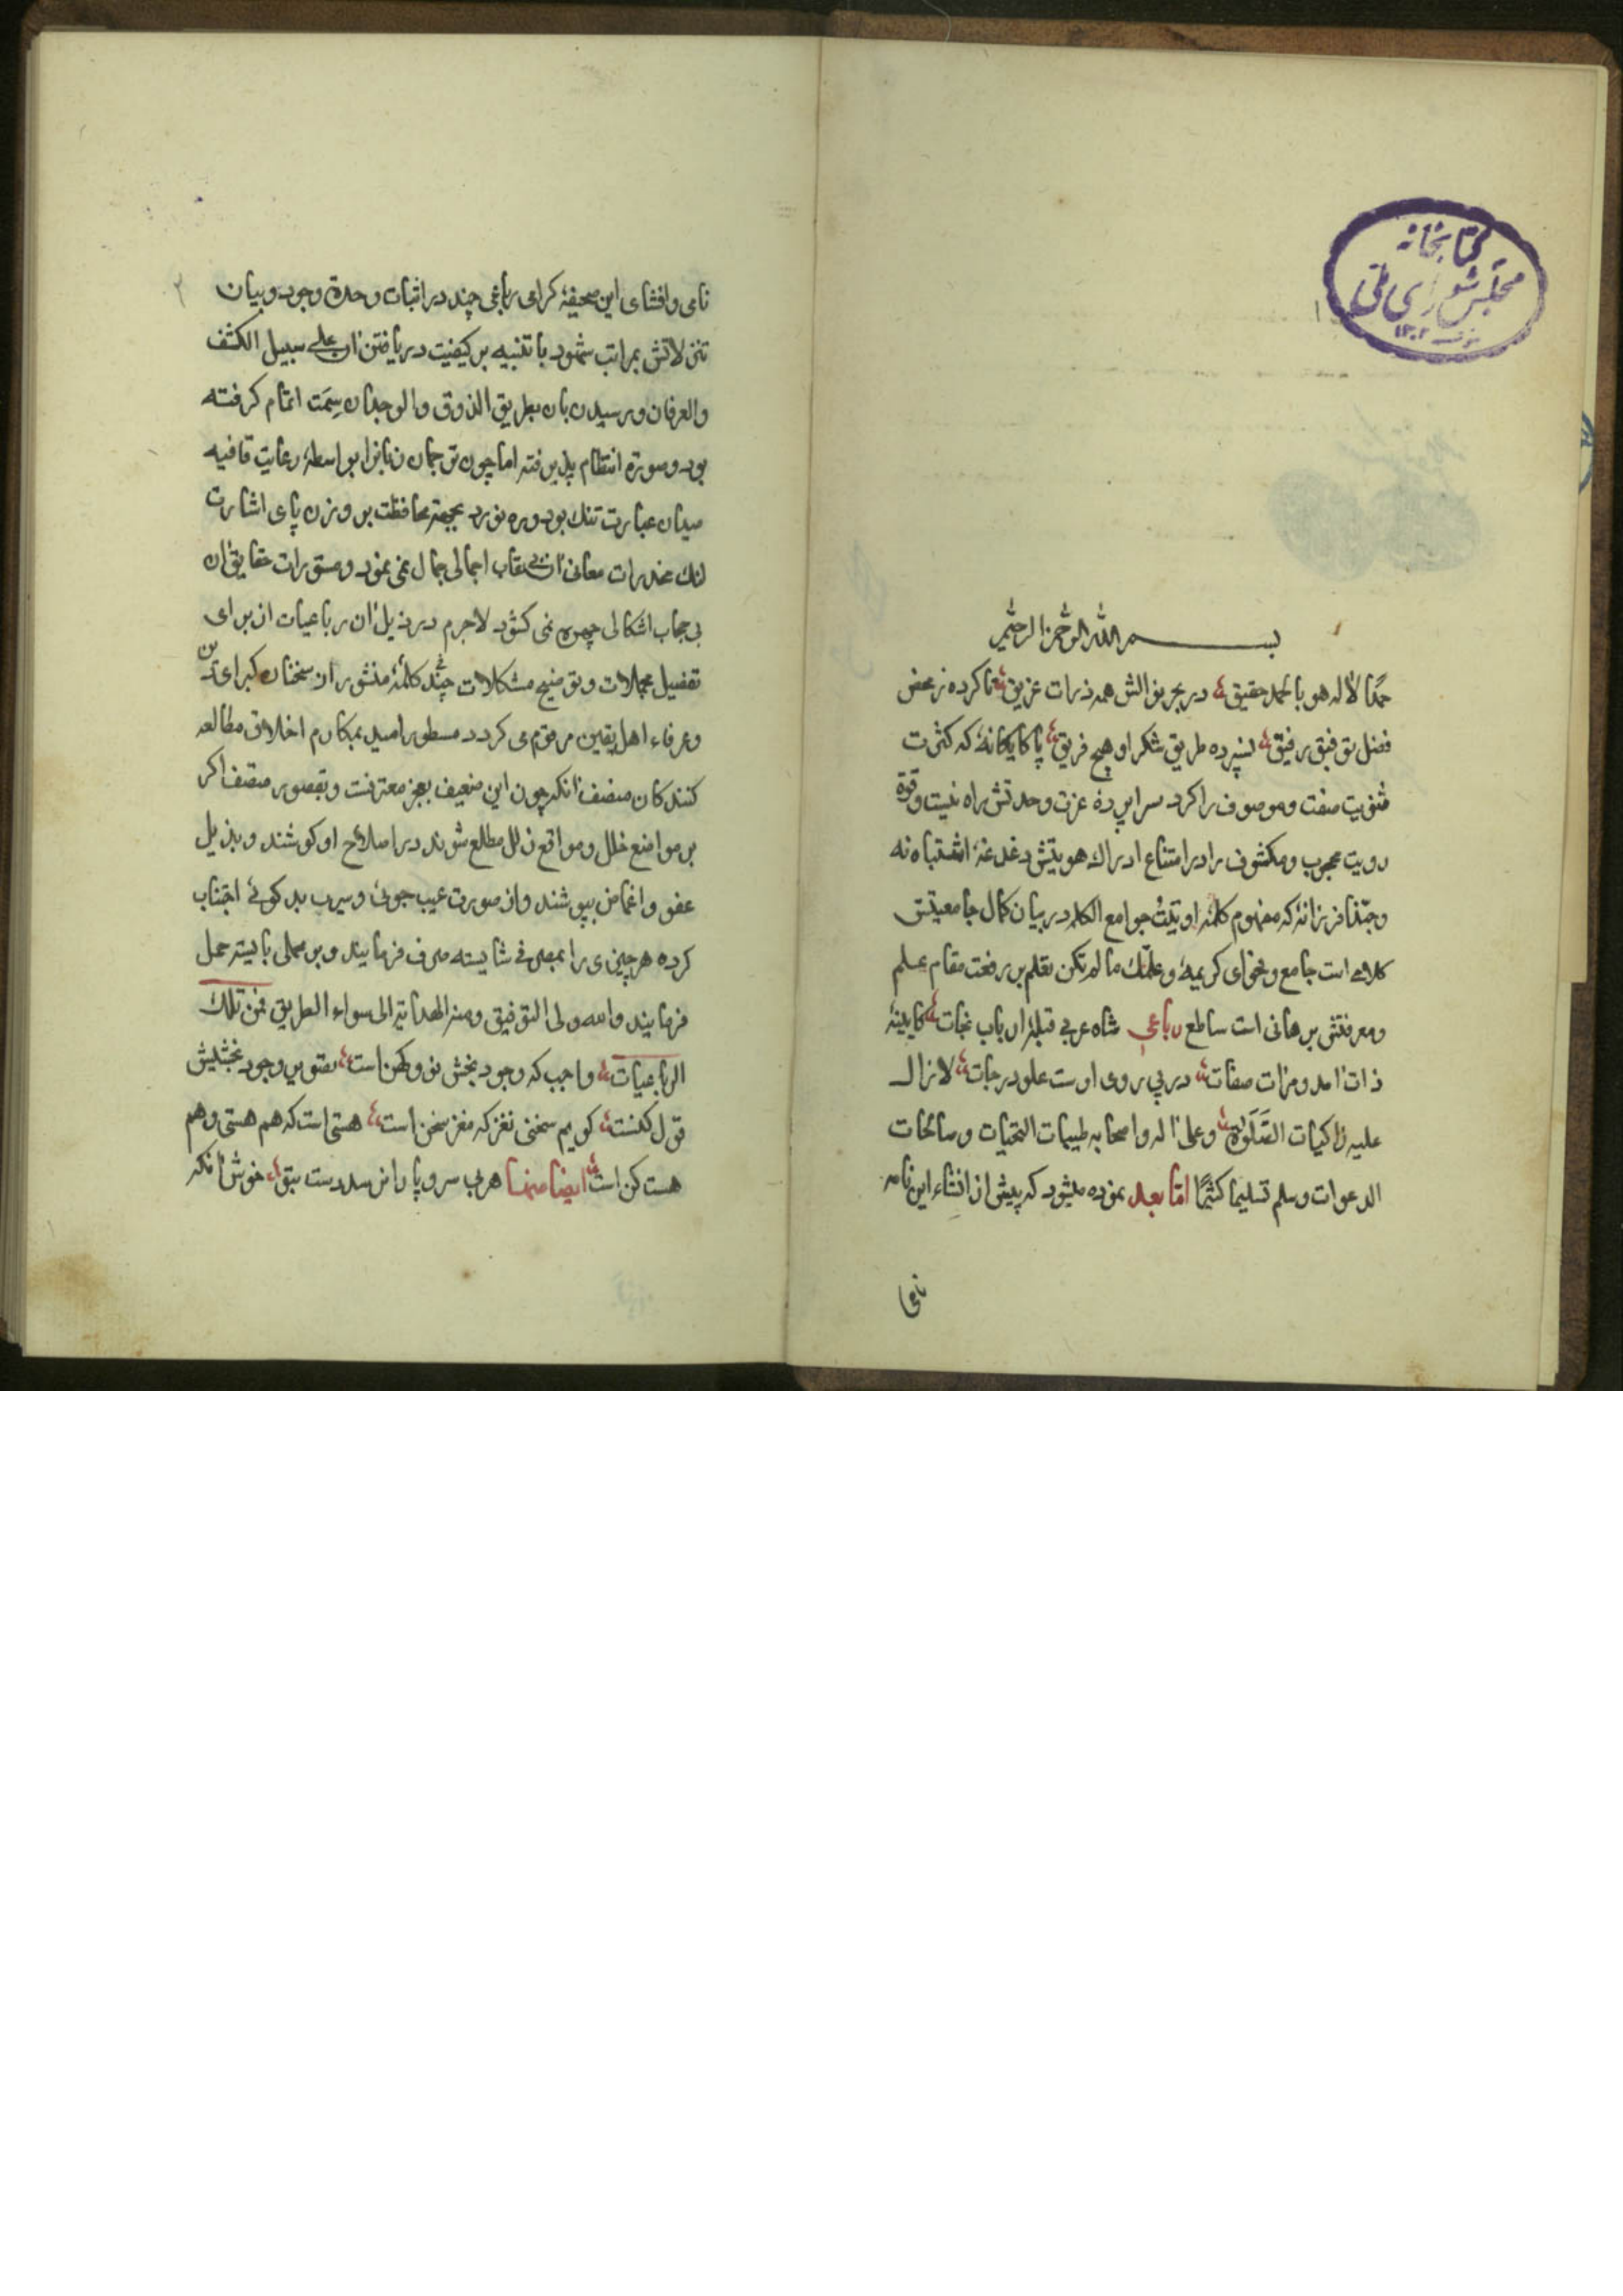 کتابخانه
مجلس شورای ملی
۱
بسم الله الرحمن الرحیم
حمدًا لاله هو بالحمد حقیق در بحر نوالش همه ذرات غریق تا کرده ز محض
فضل توفیق رفیق نسپرده طریق شکر او هیچ فریق پاکا یکانهٔ که کثرت
مثنویت صفت و موصوف را کرد سراپردهٔ عزت وحدتش راه نیست و قوة
رویت محجوب و مکشوف را در امتناع ادراک هویتش دغدغهٔ اشتباه نه
و حبّذا فرزانهٔ که مفهوم کلمهٔ اوتیتُ جوامع الکلم در بیان کمال جامعیتش
کلامی است جامع و فحوای کریمهٔ و علّمک ما لم تکن تعلم بر رفعت مقام علم
و معرفتش برهانی است ساطع رباعی شاه عربی قبلهٔ ارباب نجات کایینهٔ
ذات آمد و مرات صفات در پی روی اوست علو درجات لا زال
علیه زاکیات الصَلَوة و علی آله و اصحابه طیبات التحیات و صالحات
الدعوات و سلم تسلیما کثیرًا امّا بعد نموده میشود که پیش از انشاء این نامه
نامی
۲
نامی و افشای این صحیفهٔ کرامی رباعی چند در اثبات وحدة وجود و بیان
تنزلاتش بمراتب شهود با تنبیه بر کیفیت دریافتن آن علی سبیل الکشف
والعرفان و رسیدن بان بطریق الذوق والوجدان سِمَت اتمام کرفته
بود و صورة انتظام پذیرفته اما چون ترجمان زبانرا بواسطهٔ رعایت قافیه
میدان عبارت تنک بود و ره نورد بجهة محافظت بر وزن پای اشارت
لنک مخدرات معانی آن بی نقاب اجمالی جمال نمی نمود و مستورات حقایق آن
بی حجاب اشکالی چهره نمی کشود لاجرم در ذیل آن رباعیات از برای
تفضیل مجملات و توضیح مشکلات چند کلمهٔ منثور از سخنان کبرای دین
و عرفاء اهل یقین مرقوم می کردد مسطور امید بمکارم اخلاق مطالعه
کنندکان منصف آنکه چون این ضعیف بعجز معترفست و بقصور متصف اکر
بر مواضع خلل و مواقع زلل مطلع شوند در اصلاح او کوشند و بذیل
عفو و اغماض بپوشند و از صورت عیب جوئی و سیرت بد کوئی اجتناب
کرده هر چیزی را بمصرفی شایسته صرف فرمایند و بر محملی بایسته حمل
فرمایند والله ولی التوفیق و منه الهدایة الی سواء الطریق فمن تلک
الرباعیات واجب که وجود بخش نو و کهن است تصویر وجود بخشیش
قول کنست کویم سخنی نغز که مغز سخن است هستی است که هم هستی و هم
هست کن است ایضا منها هر بی سر و پا را نرسد دست بتو خوش آنکه